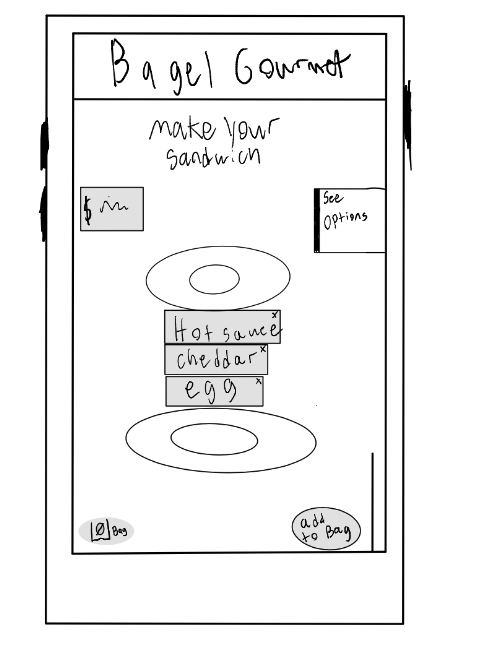 Bagel Gourmet
Make Your
Sandwich
$
See
Options
Hot sauce x
cheddar x
egg x
0 Bag
add
to Bag